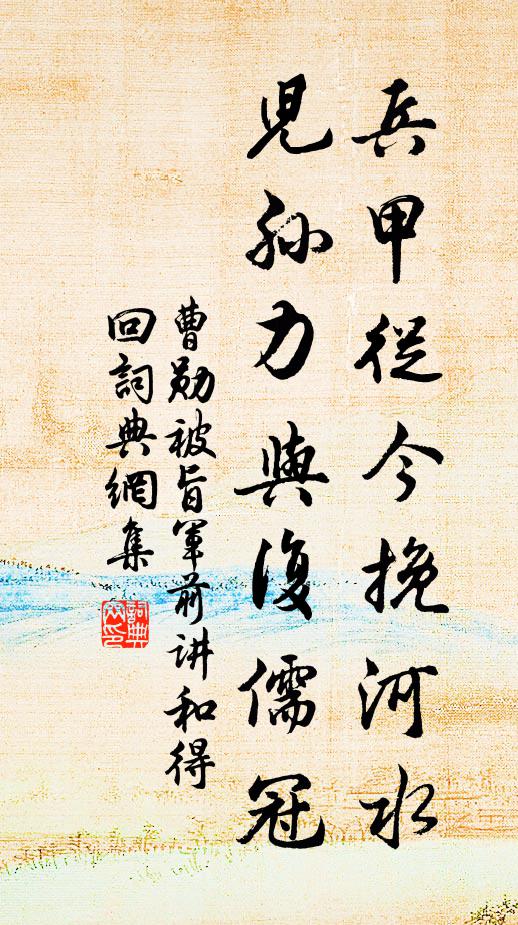 兵甲從今挽河水
児孫力與復儒冠
曹勛被旨軍前讲和得
回詞典網集
詞典